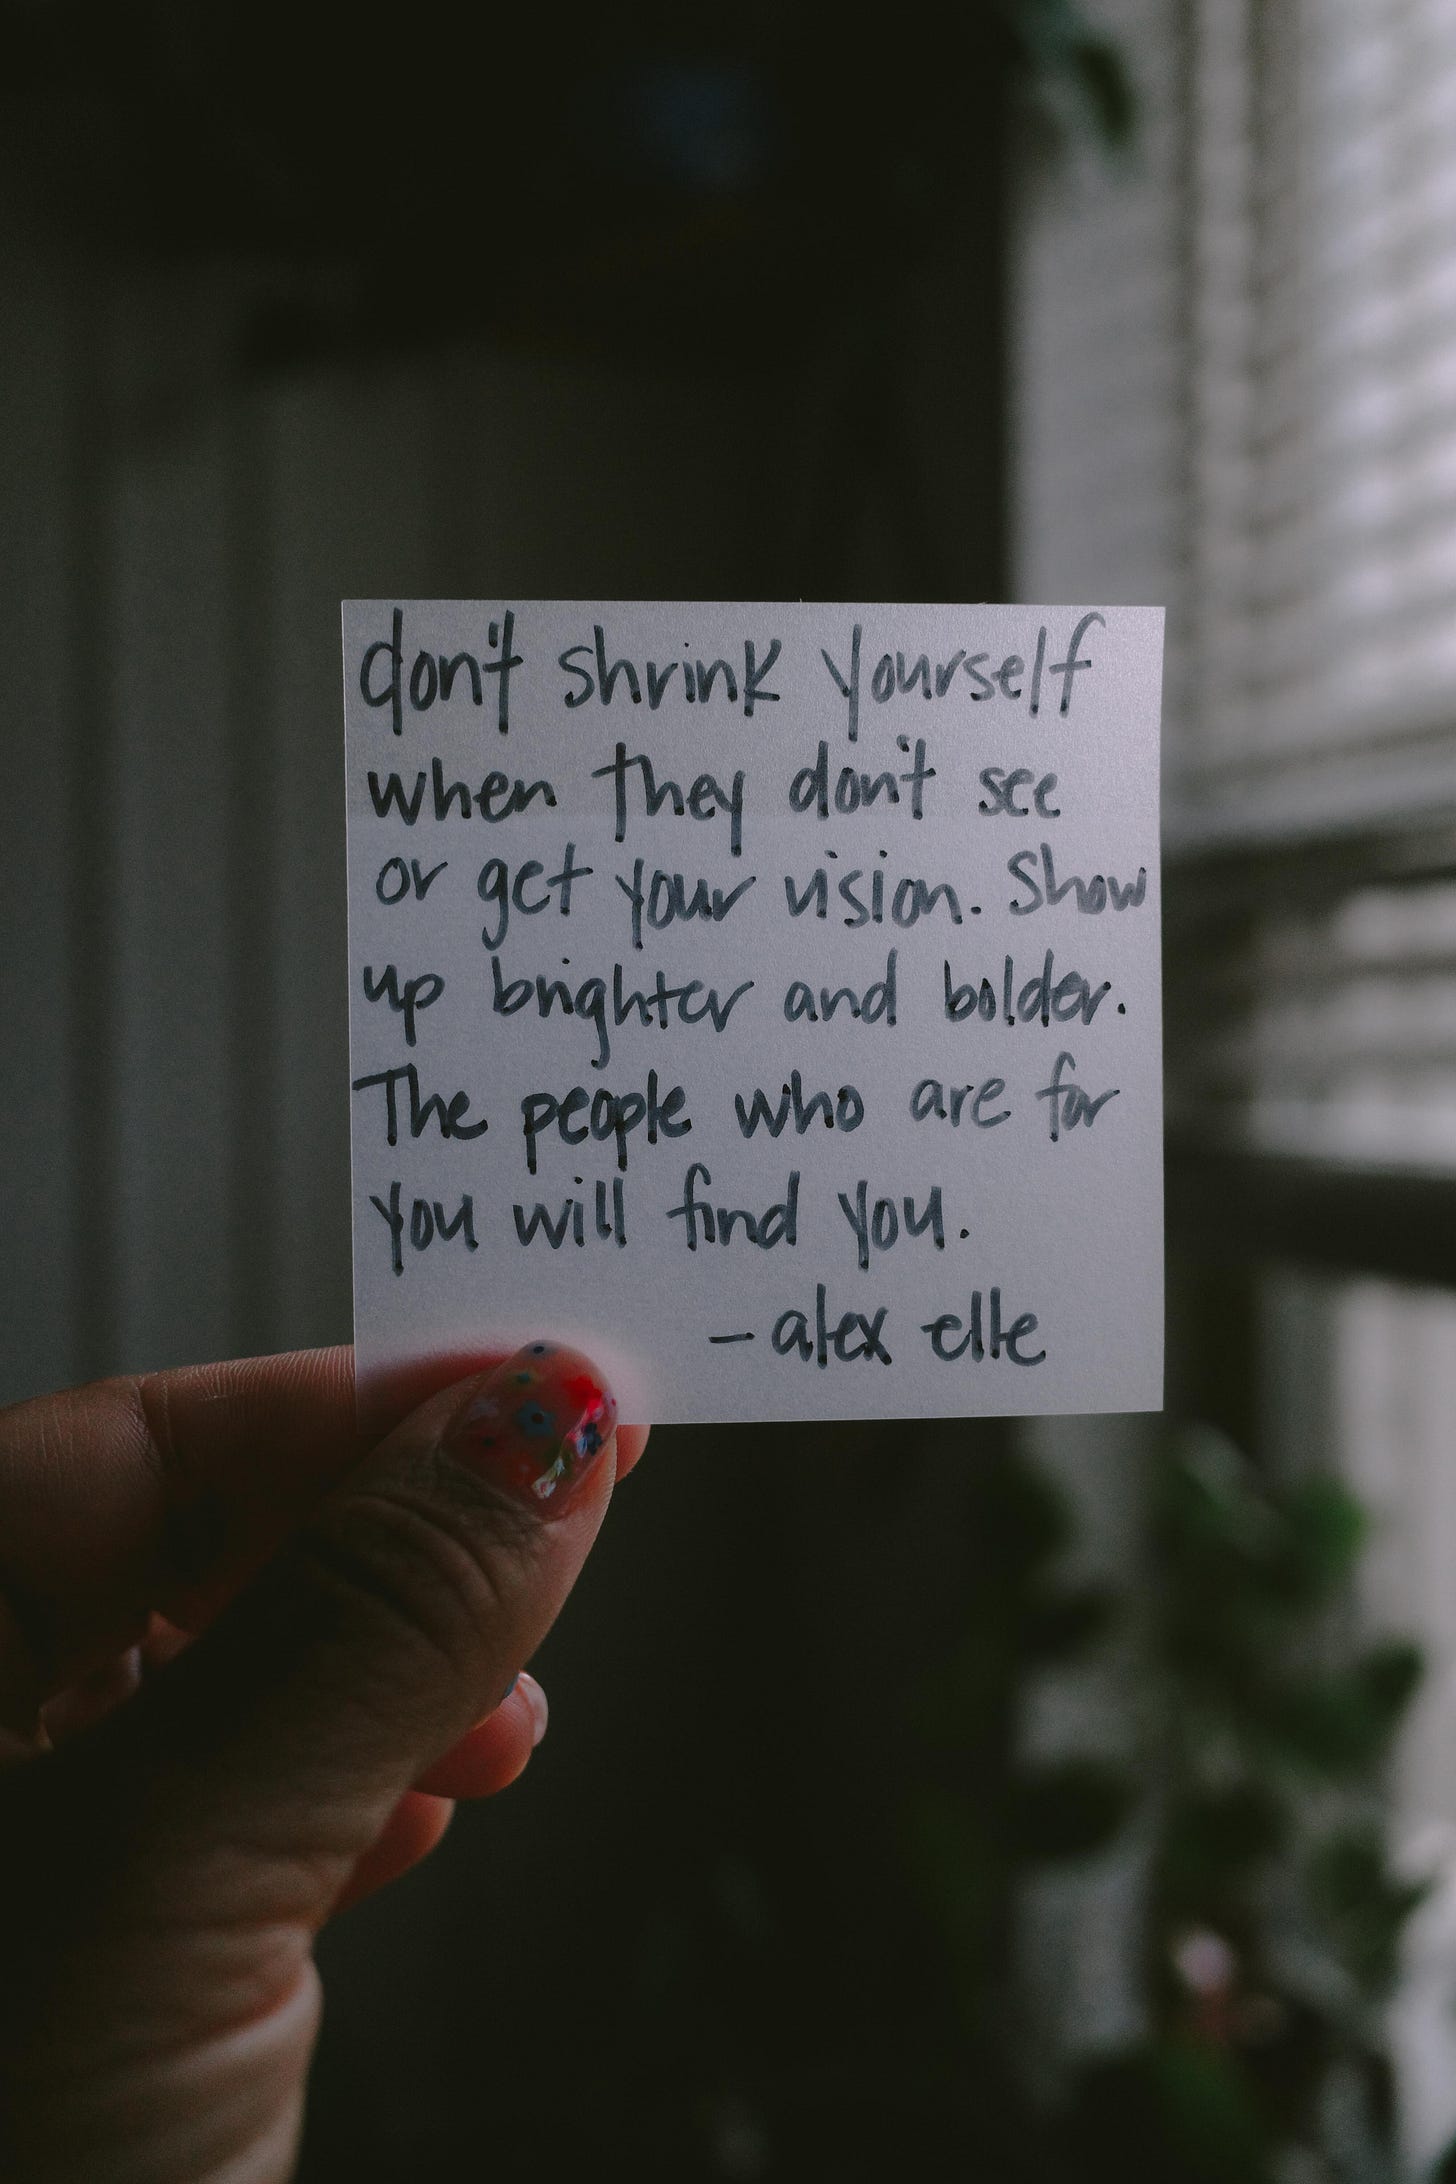 don't shrink yourself
when they don't see
or get your vision. Show
up brighter and bolder.
The people who are for
you will find you.
- alex elle